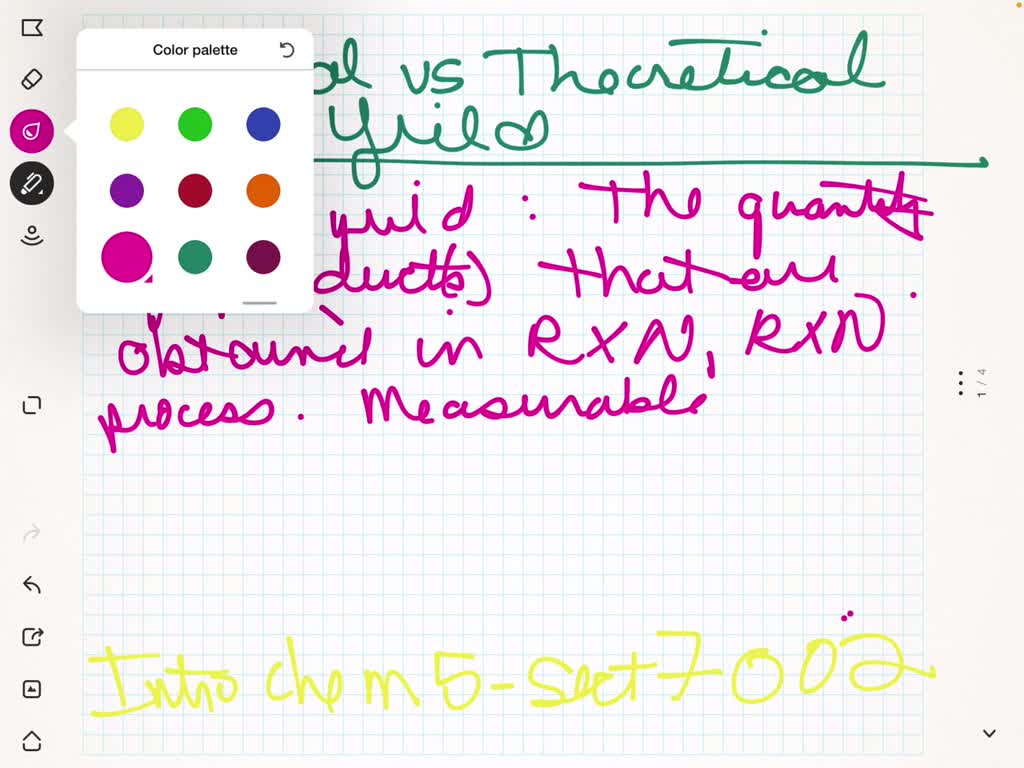 Color palette
al vs Theoretical
Yield
yield : The quantity
duct(s) that are
obtained in RXN, RXN
process. Measurable
1 / 4
Intro chem 5-Sect 7002